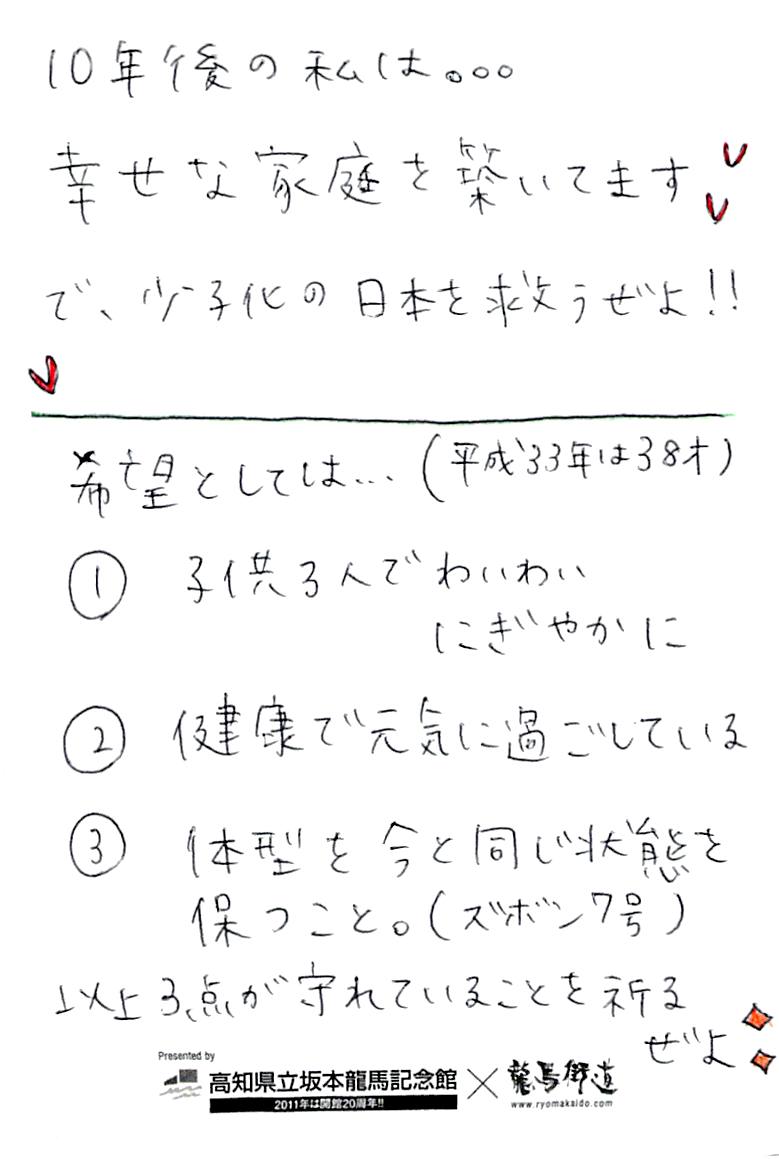 10年後の私は。。。
幸せな家庭を築いてます
で、少子化の日本を救うぜよ!!
希望としては…(平成33年は38才)
① 子供3人でわいわい
にぎやかに
② 健康で元気に過ごしている
③ 体型を今と同じ状態を
保つこと。(ズボン7号)
以上3点が守れていることを祈る
ぜよ
Presented by
高知県立坂本龍馬記念館×龍馬街道
2011年は開館20周年!!
www.ryomakaido.com